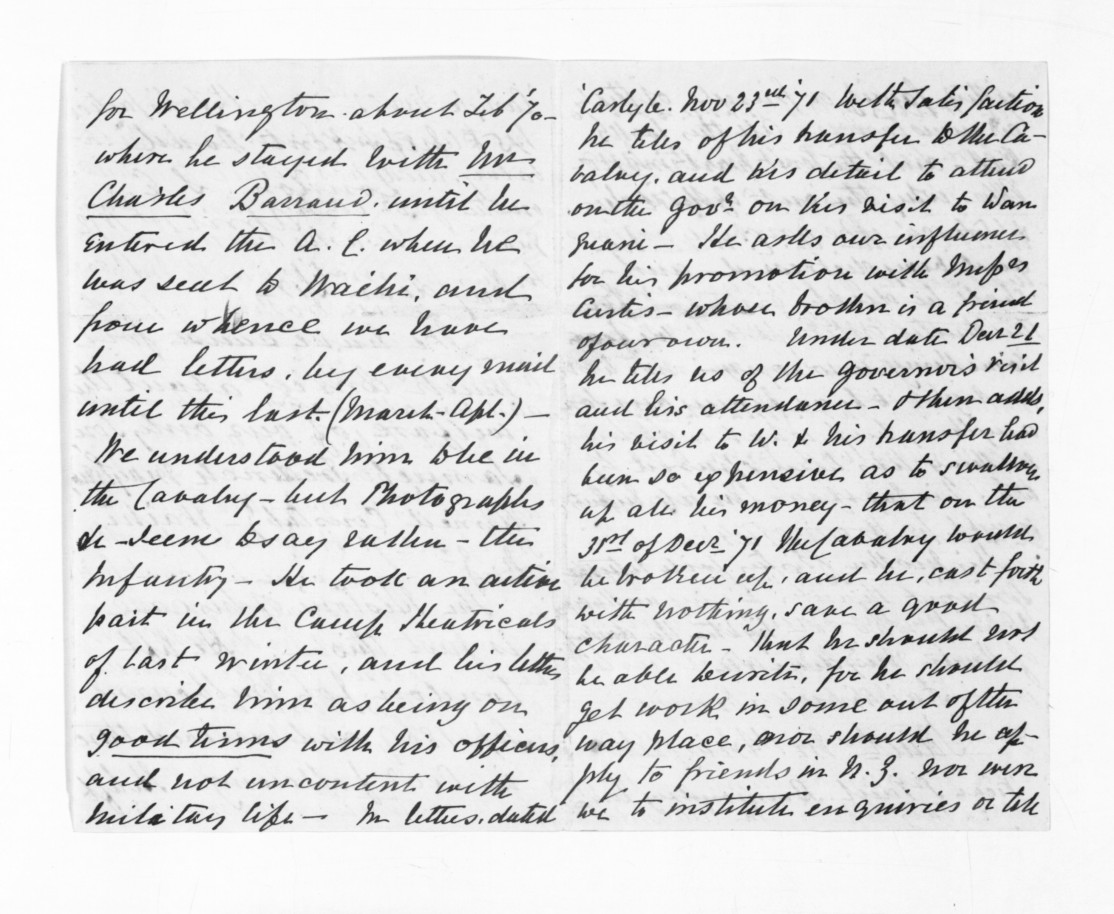 for Wellington about Feb '70 -
where he stayed with Mr
Charles Barraud. until he
entered the A. C. when he
was sent to Waihi, and
from whence we have
had letters, by every mail
until this last. (March - Apl.) -
We understood him to be in
the Cavalry - but Photographs
&c - seem to say rather - the
Infantry - He took an active
part in the Camp Theatricals
of last winter, and his letters
describe him as being on
good terms with his officers,
and not uncontent with
military life - In letters, dated
'Carlyle. Nov 23rd '71 With satisfaction
he tells of his transfer to the Ca-
valry. and his detail to attend
on the Govr. on his visit to Wan
ganui - He asks our influence
for his promotion with Misses
Curtis - whose brother is a friend
of our own. Under date Decr 21
he tells us of the Governor's visit
and his attendance - then adds,
his visit to W. & his transfer had
been so expensive as to swallow
up all his money - that on the
31st of Decr '71 the Cavalry would
be broken up, and he, cast forth
with nothing, save a good
character - That he should not
be able to write, for he should
get work in some out of the
way place, nor should he ap-
ply to friends in N. Z. nor were
we to institute enquiries or tell